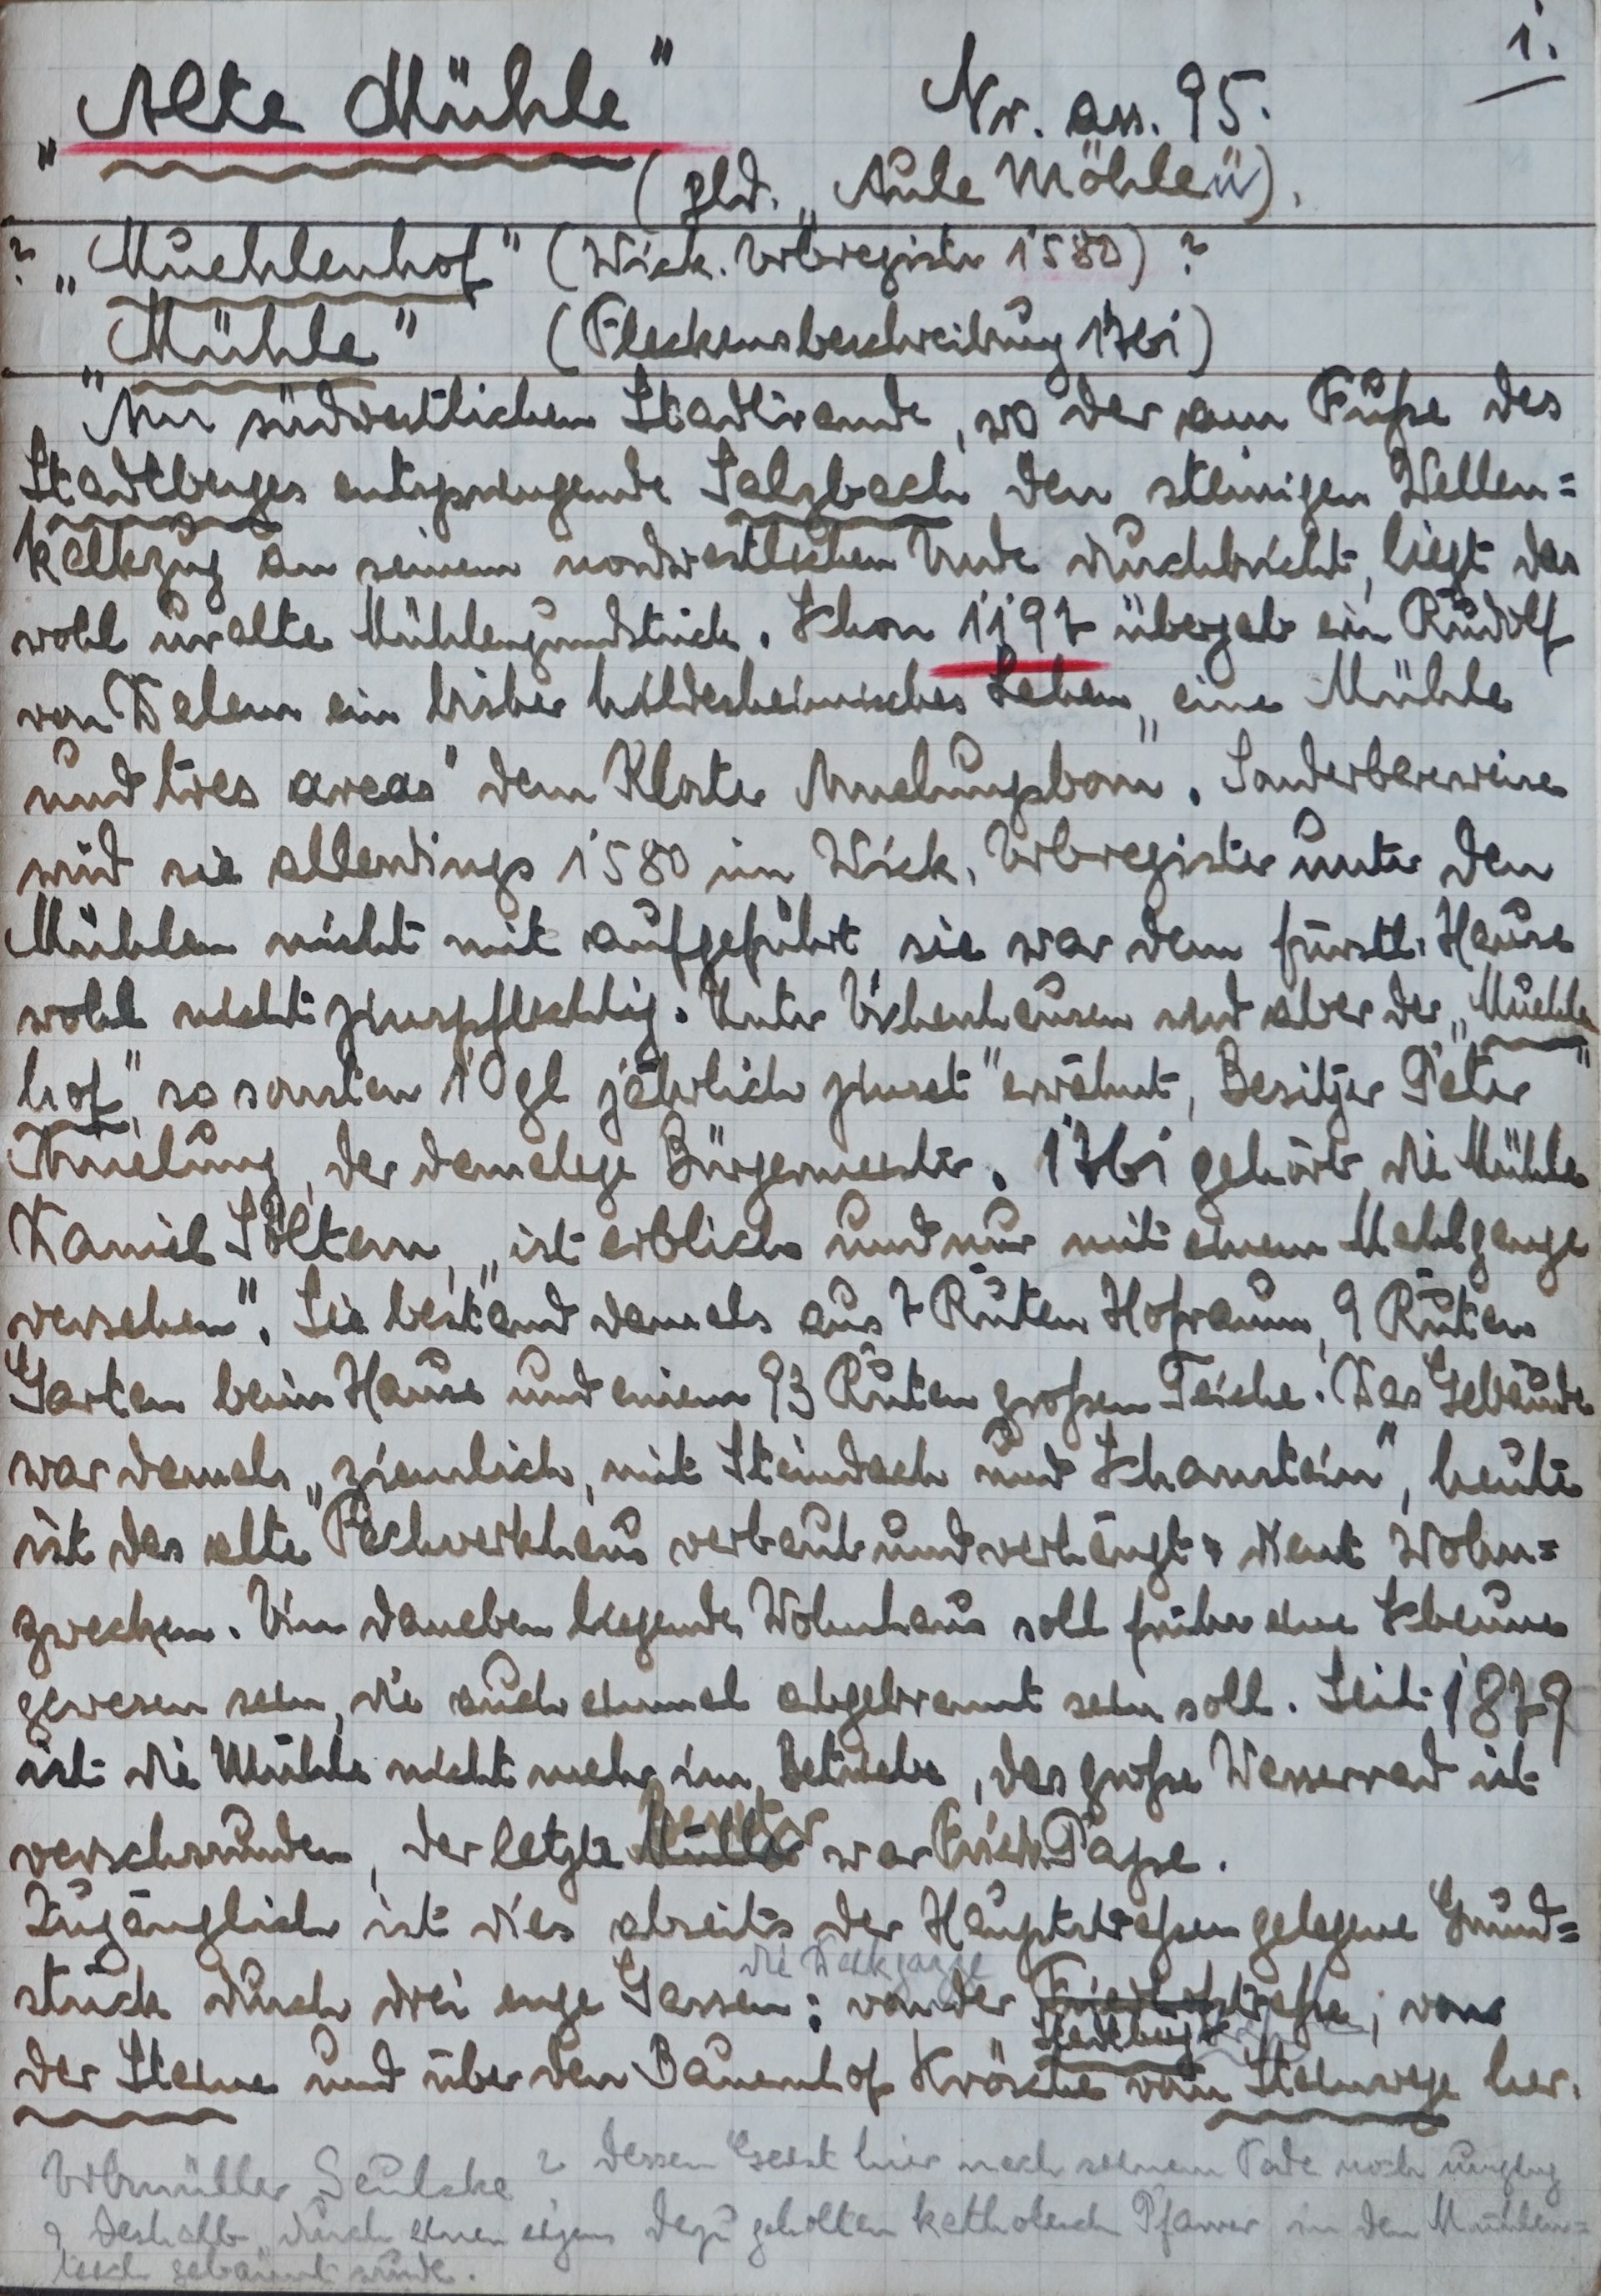 1.
„Alte Mühle“ Nr. ass. 95.
(pld. „Aule Möhle“).
? „Muehlenhof“ (Wick. Erbregister 1580) ?
„Mühle“ (Fleckensbeschreibung 1761)
Am südwestlichen Stadtrande, wo der am Fuße des
Stadtberges entspringende Salzbach den steinigen Wellen=
kalkzug an seinem nordwestlichen Ende durchbricht, liegt das
wohl uralte Mühlengrundstück. Schon 1197 übergab ein Rudolf
von Dalem ein bisher hildesheimisches Lehen „eine Mühle
und tres areas“ dem Kloster Amelungsborn. Sonderbarerweise
wird sie allerdings 1580 im Wick. Erbregister unter den
Mühlen nicht mit aufgeführt, sie war dem fürstl. Hause
wohl nicht zinspflichtig. Unter Eschenhausen wird aber der „Muehlen
hof“, so sonsten 10 gl jährlich zinset“ erwähnt, Besitzer Peter
Amelung, der damalige Bürgermeister. 1761 gehört die Mühle
Daniel Söltern, „ist erblich und nur mit einem Mahlgange
versehen“. Sie bestand damals aus 7 Ruten Hofraum, 9 Ruten
Garten beim Hause und einem 93 Ruten großen Teiche. Das Gebäude
war damals „ziemlich, mit Steindach und Schanstein“, heute
ist das alte Fachwerkhaus verbaut und verhängt & dient Wohn=
zwecken. Ein daneben liegendes Wohnhaus soll früher eine Scheune
gewesen sein, die auch einmal abgebrannt sein soll. Seit 1879
ist die Mühle nicht mehr im Betriebe, das große Wasserrad ist
verschwunden, der letzte Müller Besitzer war Erich Pape.
Zugänglich ist dies abseits der Hauptstraßen gelegene Grund=
stück durch drei enge Gassen: von der Friedhofstraße, von
die Teichgasse
Stadtberg
der Steine und über den Bauernhof Kröske vom Steinwege her.
Erbmüller Seulcke ? dessen Geist hier nach seinem Tode noch umging
& deshalb durch einen eigens dazu geholten katholisch Pfarrer in den Mühlen=
teich gebannt wurde.